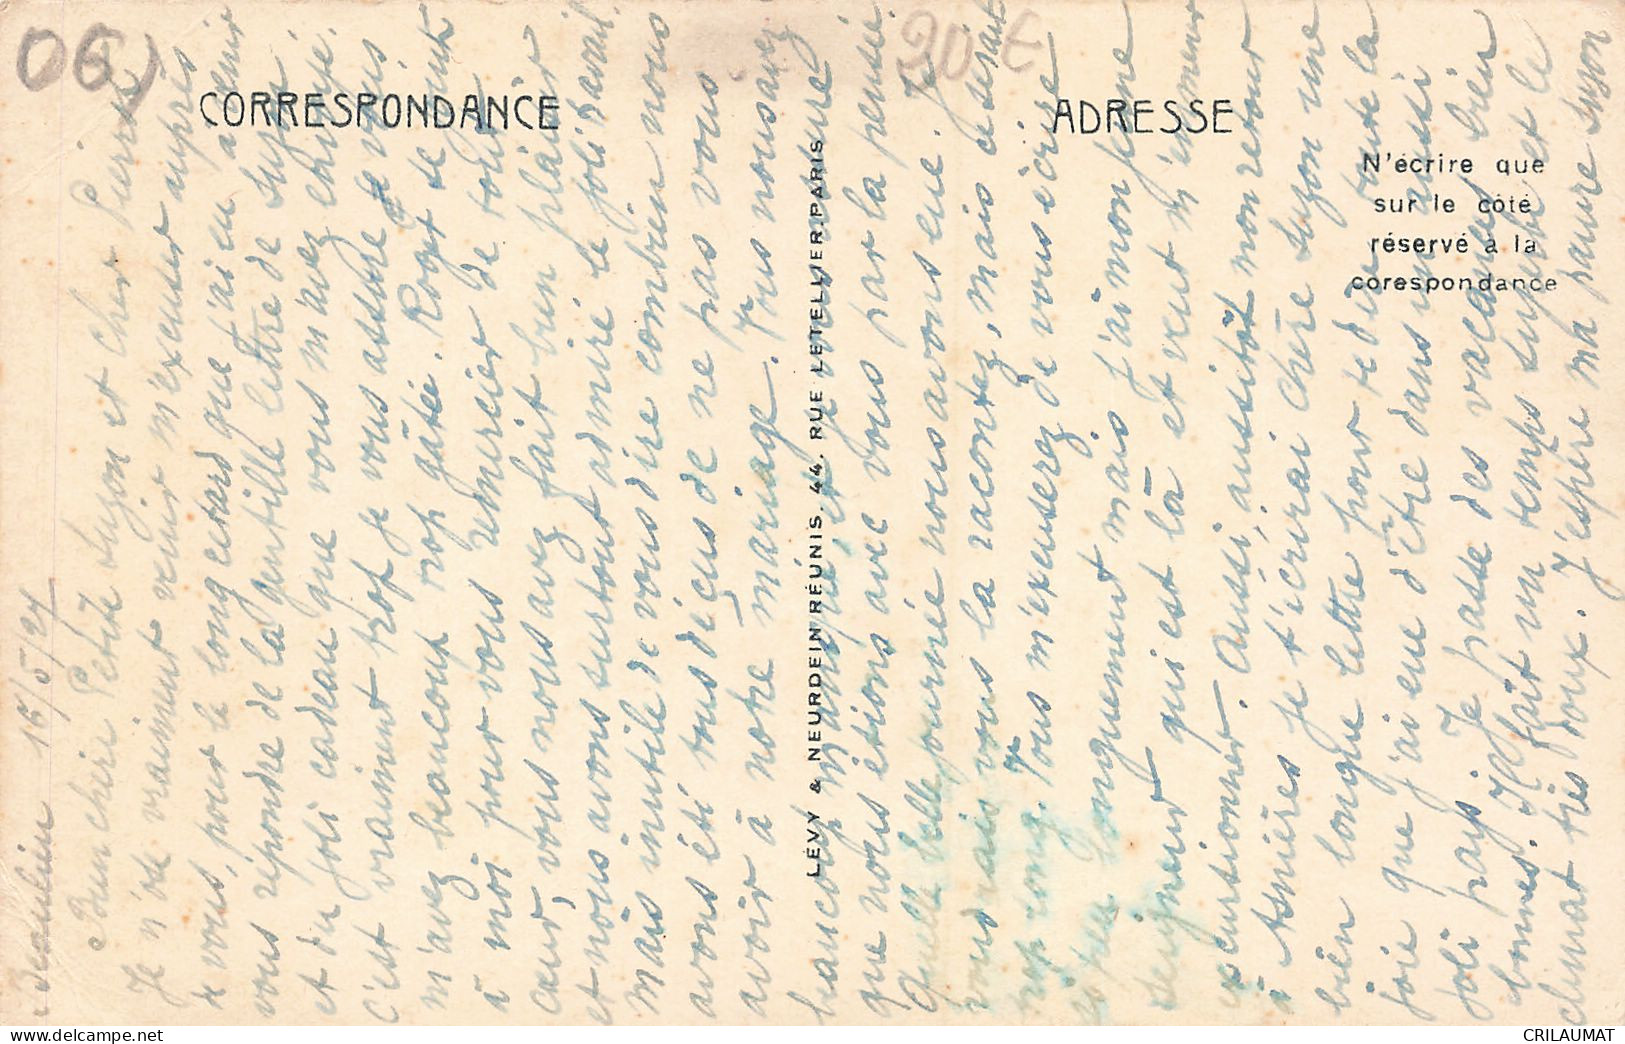 06)
20 E
CORRESPONDANCE
ADRESSE
N'écrire que
sur le côté
réservé à la
corespondance
LÉVY & NEURDEIN RÉUNIS, 44, RUE LETELLIER, PARIS
Beaulieu 16/5/27
Bien chéri Petite Suzon et cher Pierrot
Je n'ose vraiment venir m'excuser auprès
de vous, pour le long retard que j'ai eu à venir
vous répondre de la gentille lettre de Supé
et du joli cadeau que vous m'avez envoyé.
C'est vraiment trop je vous assure et vous
m'avez beaucoup trop gâtée. Roger se joint
à moi pour vous remercier de tout
cœur, vous nous avez fait bien plaisir
et nous avons surtout admiré le joli travail.
Mais inutile de vous dire combien nous
avons été tous déçus de ne pas vous
avoir à notre mariage. Vous nous avez
beaucoup manqué et vous assure
que nous étions avec vous par la pensée.
Quelle belle journée nous avons eue. Je
voudrais vous la racontez, mais ce serait
trop long. Vous m'excuserez de vous écrire
longuement mais j'ai mon jeune
seigneur qui est là et veut m'emmener
excursionner. Aussi, aussitôt mon retour
à Asnières je t'écrirai chère Suzon une
bien longue lettre pour te dire toute la
joie que j'ai eue d'être dans un aussi
joli pays. Je passe des vacances bien
bonnes. Il fait un temps superbe et le
climat très doux. J'espère ma pauvre Suzon